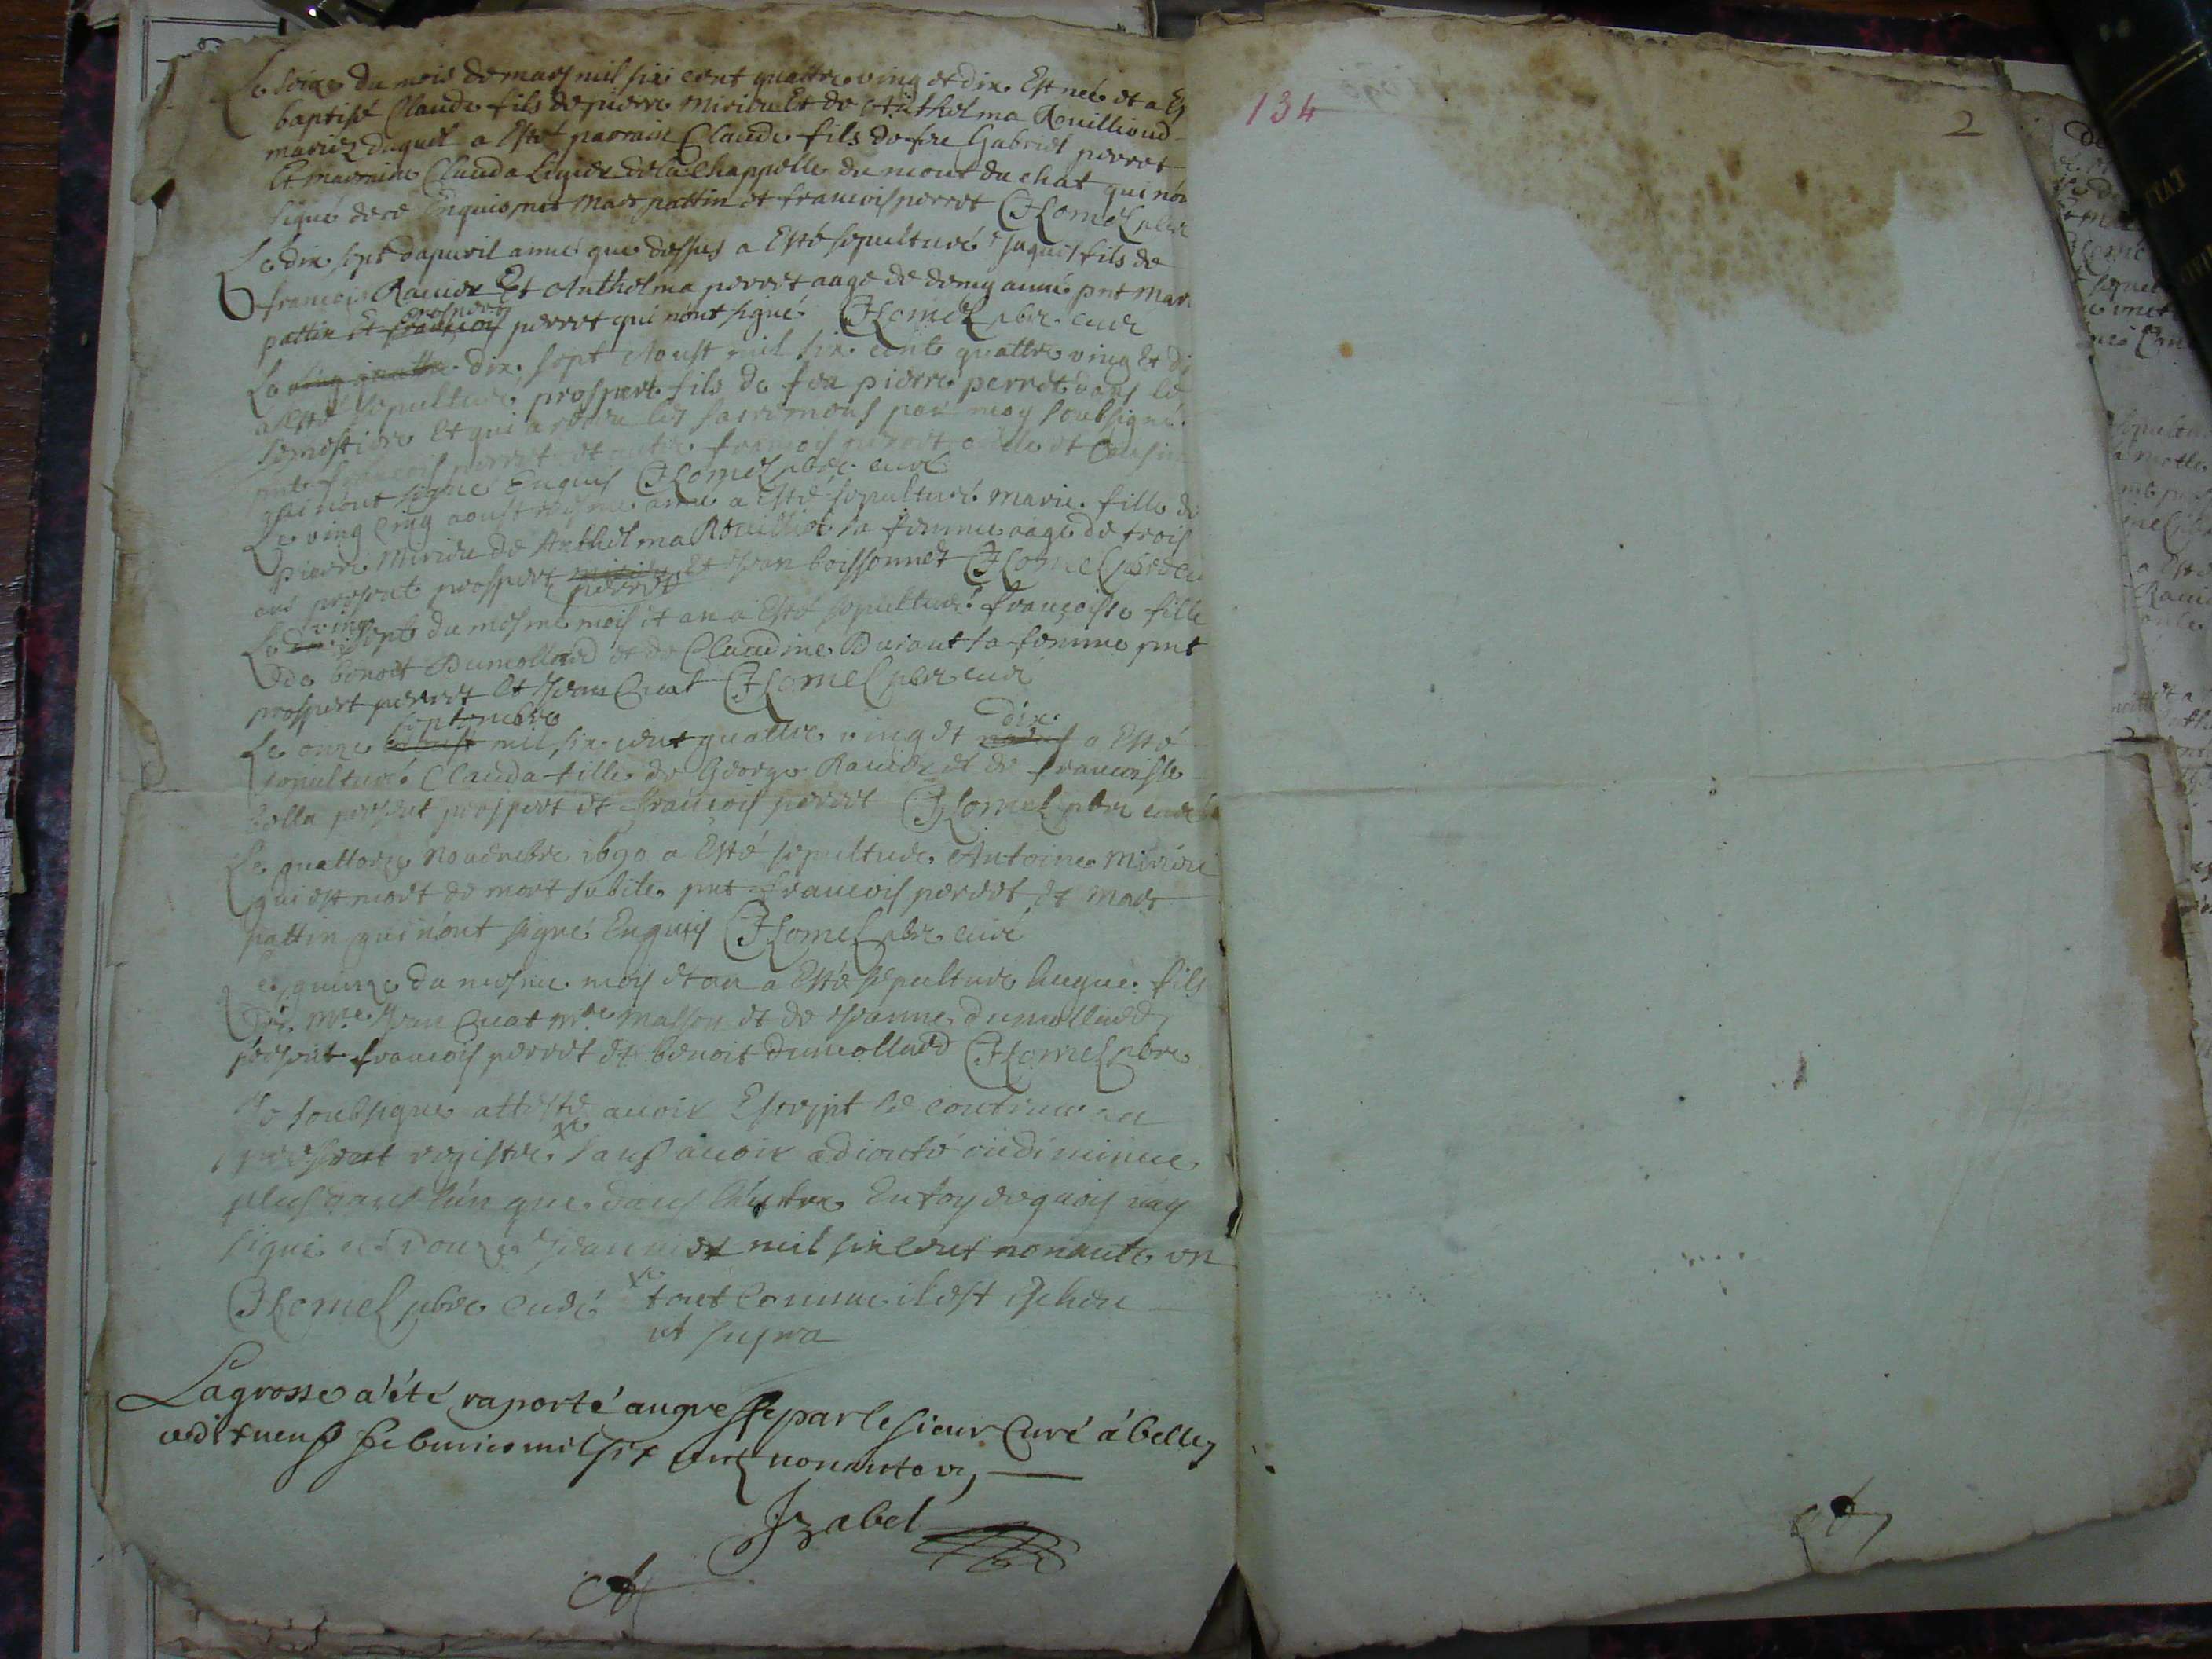 Le seize du mois de mars mil six cent quattre ving et dix Est neé et a Es
baptisé Claude fils de pierre Miviere Et de Anthelma Rouillioud
mariez duquel a Esté parrain Claude fils de feu Gabriel perret
Et marraine Clauda de la Chappelle du mont du chat qui nón
signé de ce Enquis pnt Marc pattin et francois perret Homel pbre
Le dix sept dapuril anné que dessus a Esté sepulturé Jaques fils de
francois Ravier Et Anthelma perret aage de demy anné pnt Marc
pattin Et prospert perret qui nónt signé. Homel pbre curé
Le dix sept Aoust mil six cent quattre ving et di
a Esté sepulturé prospert fils de feu pierre perret dans le
semestiere Et qui a receu les sacremens par moy soubsigné
pnt francois perret et autre francois perret oncle et Cousin
qui nónt signé Enquis Homel pbre curé
Le ving cinq aoust mesme anné a Esté sepulturé Marie fille de
pierre Miviere de Anthelma Rouilliot sa femme aagé de trois
ans present prospert perret Et Jean boissonnet Homel pbre cu
Le ving sept du mesme mois et an a Esté sepulturé francoise fille
de benoit Dumollard et de Claudine Durant sa femme pnt
prospert perret Et Jean Cuat Homel pbre curé
Le onze septembre mil six cent quattre ving et dix a Esté
sepulturé Clauda fille de George Ravier et de francoise
Bolla present prospert et francois perret Homel pbre curé
Le quattorze Novembre 1690 a Esté sepulturé Antoine Miviere
qui est mort de mort subite pnt francois perret et Marc
pattin qui nónt signé Enquis Homel pbre curé
Le quinze du mesme mois et an a Esté sepulturé hugue fils
de Mre Jean Cuat Mre Masson et de Jeanne dumollard
present francois perret et benoit dumollard Homel pbre
Je soubsigné atteste avoir Escript le contenu au
present registre sans avoir adiouté ni diminué
plus dans lún que dans láutre En foy de quois jáy
signé ce douze Janvier mil six cent nonante un
Homel pbre curé tout comme il est escheu
ut supra
La grosse a été raporté au greffe par le sieur Curé á belley
ce dixneuf febvrier mil six cent nonante un
Jzabel
134
2